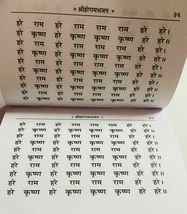 * श्रीहरेरामभजन *
हरे राम हरे राम राम राम हरे हरे।
हरे कृष्ण हरे कृष्ण कृष्ण कृष्ण हरे हरे॥
हरे राम हरे राम राम राम हरे हरे।
हरे कृष्ण हरे कृष्ण कृष्ण कृष्ण हरे हरे॥
हरे राम हरे राम राम राम हरे हरे।
हरे कृष्ण हरे कृष्ण कृष्ण कृष्ण हरे हरे॥
हरे राम हरे राम राम राम हरे हरे।
हरे कृष्ण हरे कृष्ण कृष्ण कृष्ण हरे हरे॥
* श्रीहरेरामभजन *
हरे राम हरे राम राम राम हरे हरे।
हरे कृष्ण हरे कृष्ण कृष्ण कृष्ण हरे हरे॥
हरे राम हरे राम राम राम हरे हरे।
हरे कृष्ण हरे कृष्ण कृष्ण कृष्ण हरे हरे॥
हरे राम हरे राम राम राम हरे हरे।
हरे कृष्ण हरे कृष्ण कृष्ण कृष्ण हरे हरे॥
हरे राम हरे राम राम राम हरे हरे।
हरे कृष्ण हरे कृष्ण कृष्ण कृष्ण हरे हरे॥